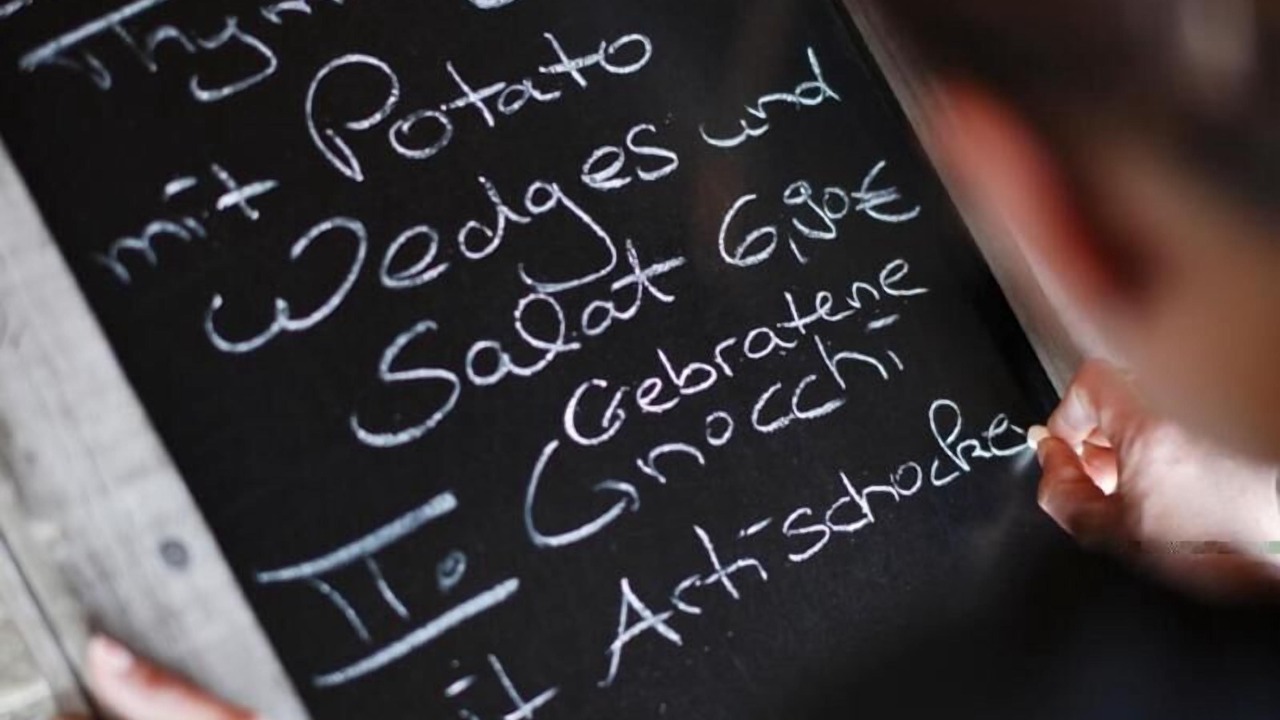 mit Potato
Wedges und
Salat 6,90€
II. Gebratene
Gnocchi
Artischocke